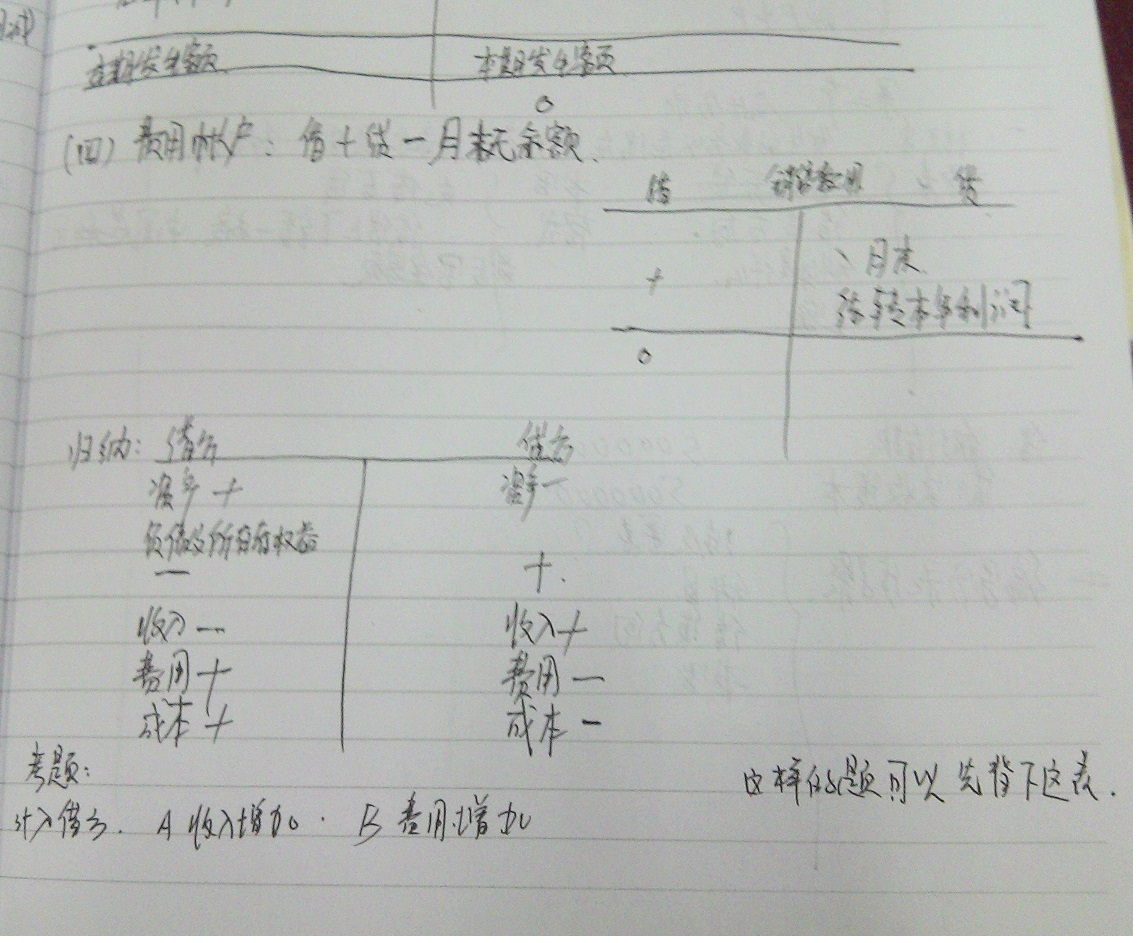 本期发生额 本期发生额
0
(四) 费用帐户: 借+贷一月末无余额.
借 销售费用 贷
+ 、月末
结转本年利润
0
归纳: 借方 贷方
资产+ 资产一
负债及所有者权益
一 +.
收入一 收入+
费用+ 费用一
成本+ 成本-
考题:
这样的题可以先背下这表.
计入借方. A 收入增加. B 费用增加